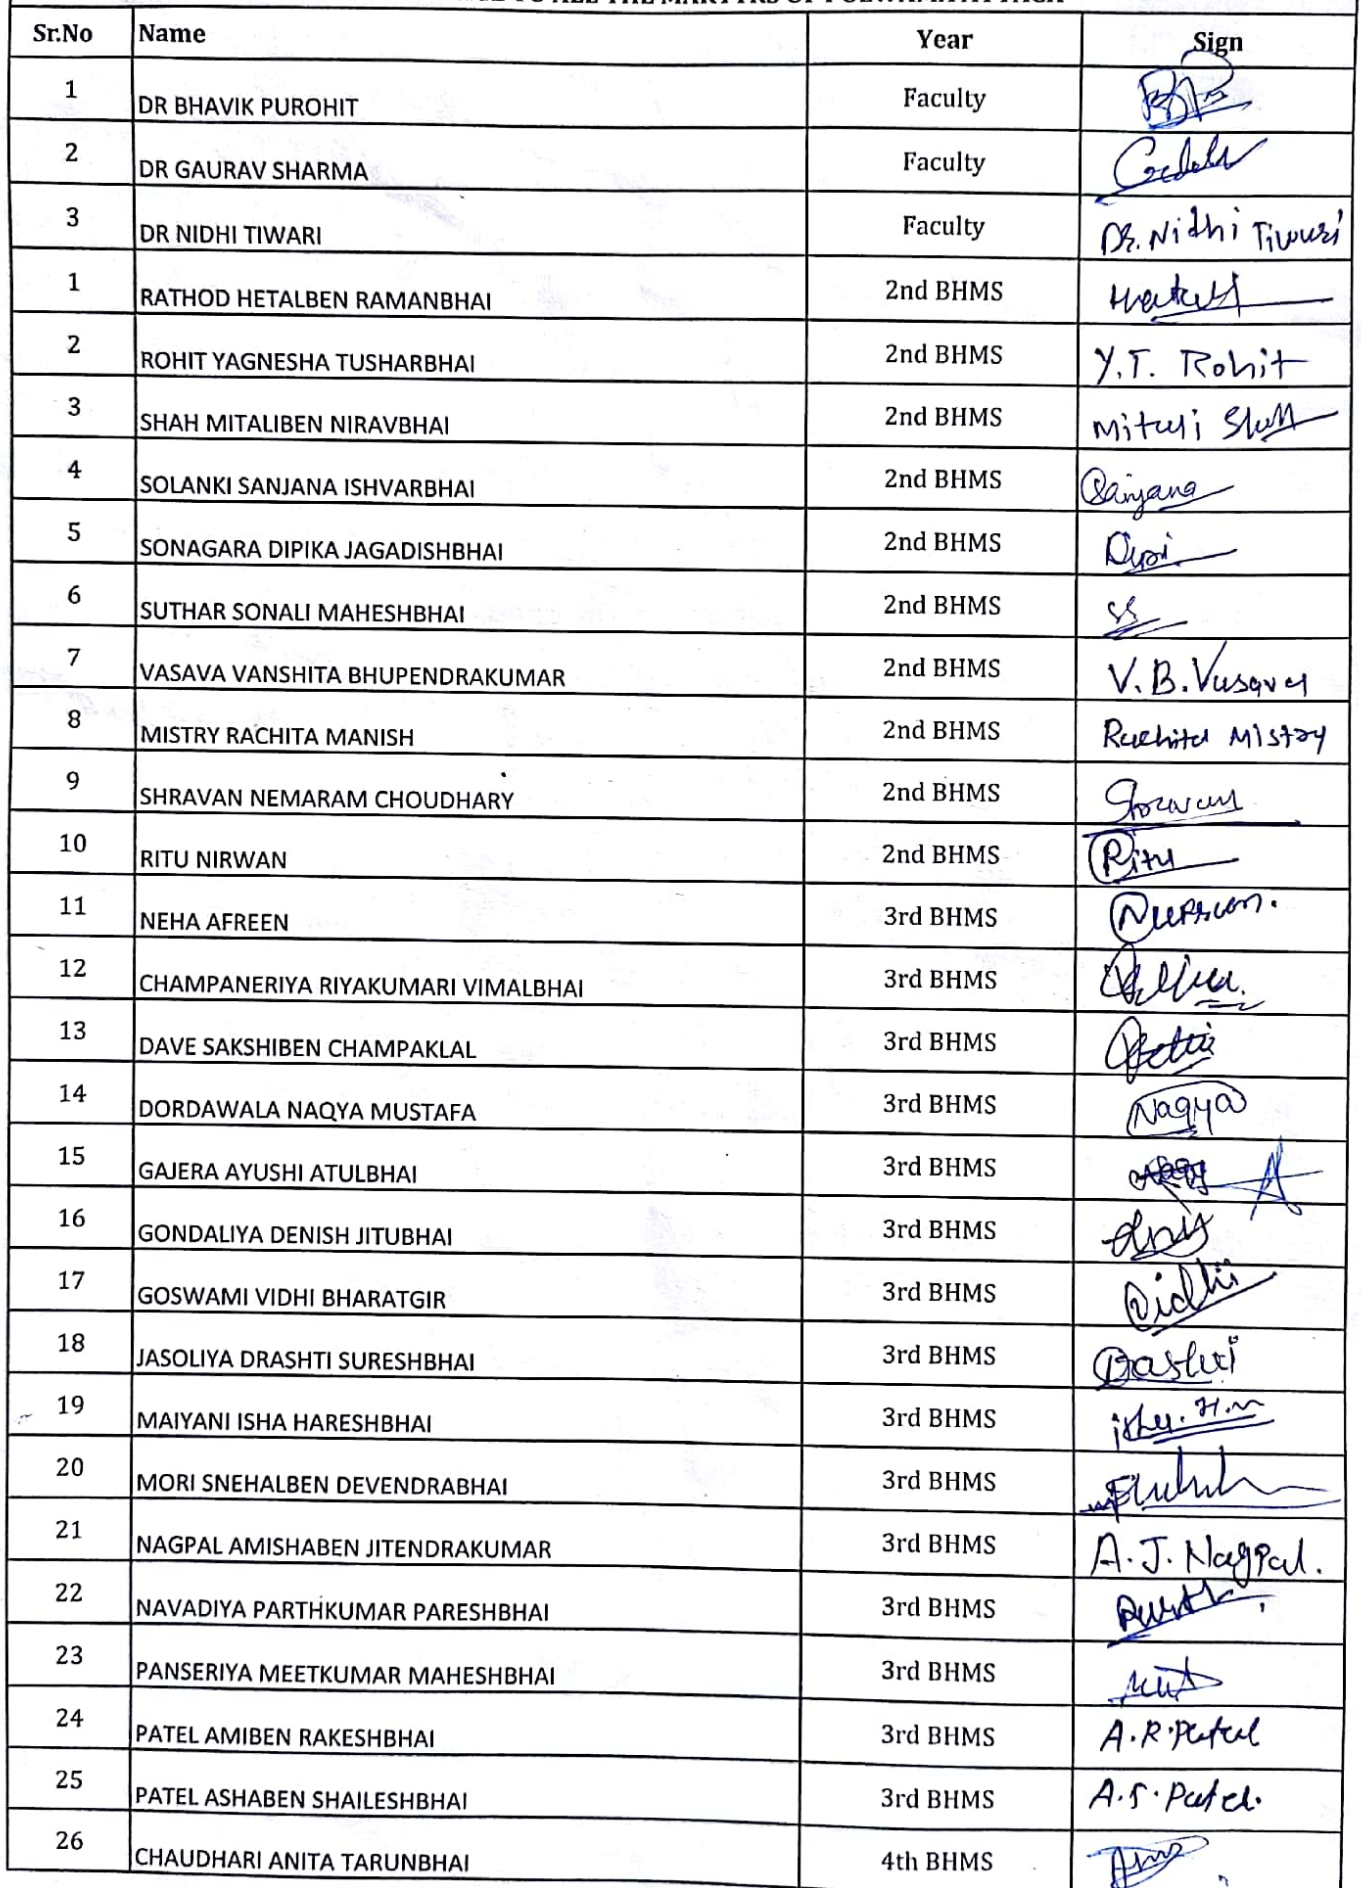 TO ALL THE MARTYRS OF PULWAMA ATTACK
Sr.No Name Year Sign
1 DR BHAVIK PUROHIT Faculty
2 DR GAURAV SHARMA Faculty
3 DR NIDHI TIWARI Faculty Dr. Nidhi Tiwari
1 RATHOD HETALBEN RAMANBHAI 2nd BHMS
2 ROHIT YAGNESHA TUSHARBHAI 2nd BHMS Y.T. Rohit
3 SHAH MITALIBEN NIRAVBHAI 2nd BHMS Mitali Shah
4 SOLANKI SANJANA ISHVARBHAI 2nd BHMS Sanjana
5 SONAGARA DIPIKA JAGADISHBHAI 2nd BHMS
6 SUTHAR SONALI MAHESHBHAI 2nd BHMS SS
7 VASAVA VANSHITA BHUPENDRAKUMAR 2nd BHMS V.B.Vasava
8 MISTRY RACHITA MANISH 2nd BHMS Rachita Mistry
9 SHRAVAN NEMARAM CHOUDHARY 2nd BHMS
10 RITU NIRWAN 2nd BHMS Ritu
11 NEHA AFREEN 3rd BHMS
12 CHAMPANERIYA RIYAKUMARI VIMALBHAI 3rd BHMS
13 DAVE SAKSHIBEN CHAMPAKLAL 3rd BHMS
14 DORDAWALA NAQYA MUSTAFA 3rd BHMS Naqya
15 GAJERA AYUSHI ATULBHAI 3rd BHMS
16 GONDALIYA DENISH JITUBHAI 3rd BHMS
17 GOSWAMI VIDHI BHARATGIR 3rd BHMS Vidhi
18 JASOLIYA DRASHTI SURESHBHAI 3rd BHMS
19 MAIYANI ISHA HARESHBHAI 3rd BHMS isha. H.M
20 MORI SNEHALBEN DEVENDRABHAI 3rd BHMS
21 NAGPAL AMISHABEN JITENDRAKUMAR 3rd BHMS A.J. Nagpal.
22 NAVADIYA PARTHKUMAR PARESHBHAI 3rd BHMS
23 PANSERIYA MEETKUMAR MAHESHBHAI 3rd BHMS
24 PATEL AMIBEN RAKESHBHAI 3rd BHMS A.R.Patel
25 PATEL ASHABEN SHAILESHBHAI 3rd BHMS A.S.Patel.
26 CHAUDHARI ANITA TARUNBHAI 4th BHMS